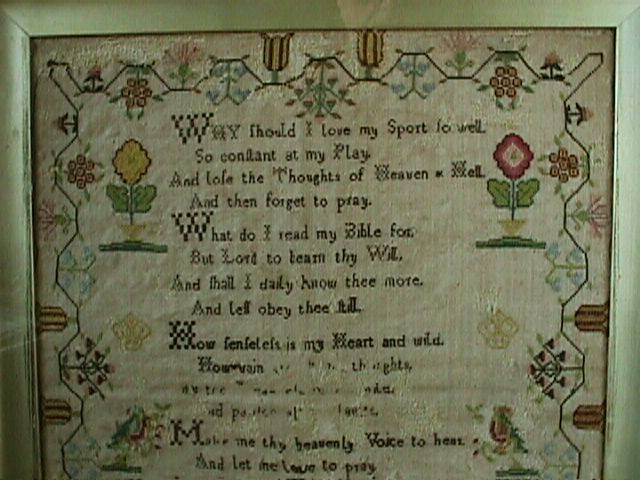 WHY ſhould I love my Sport ſo well.
So conſtant at my Play.
And loſe the Thoughts of Heaven & Hell.
And then forget to pray.
What do I read my Bible for.
But Lord to learn thy Will.
And ſhall I daily know thee more.
And leſſ obey thee ſtill.
How ſenſeleſs is my Heart and wild.
How vain thoughts,
Make me thy heavenly Voice to hear.
And let me love to pray.